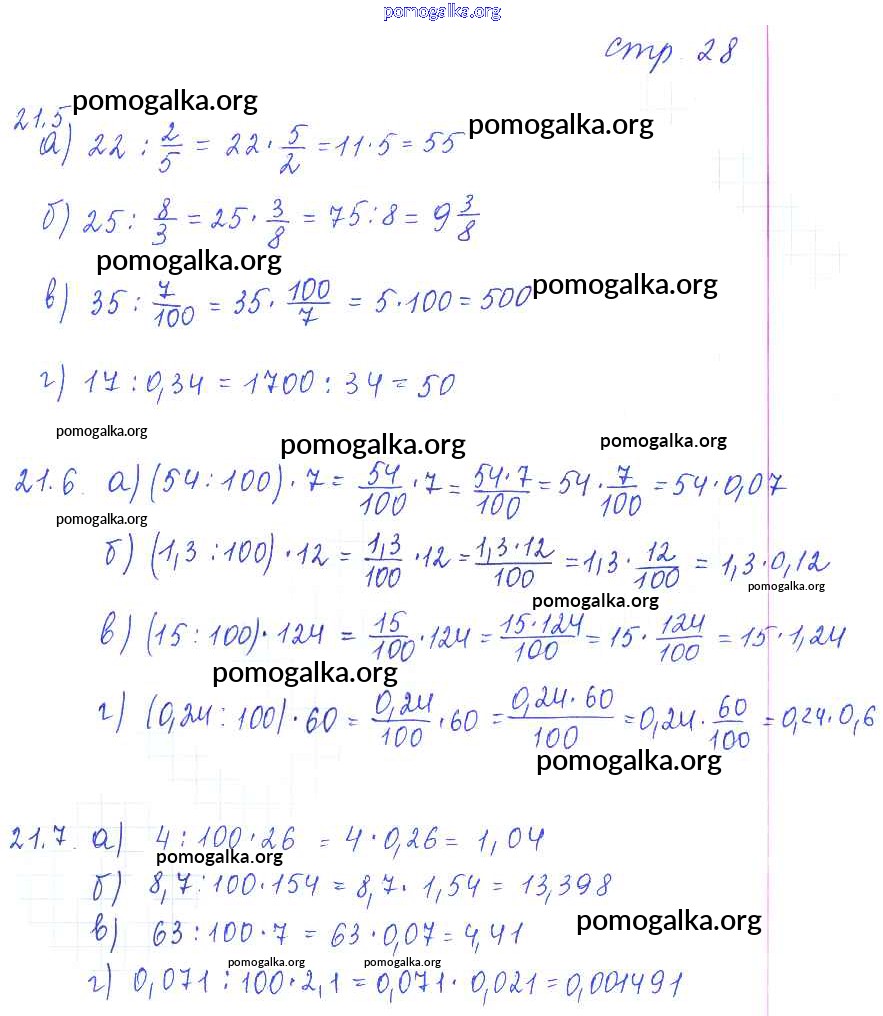 pomogalka.org
стр. 28
pomogalka.org
21.5
pomogalka.org
а) 22 : 2/5 = 22 · 5/2 = 11 · 5 = 55
б) 25 : 8/3 = 25 · 3/8 = 75 : 8 = 9 3/8
pomogalka.org
pomogalka.org
в) 35 : 7/100 = 35 · 100/7 = 5 · 100 = 500
г) 17 : 0,34 = 1700 : 34 = 50
pomogalka.org
pomogalka.org
pomogalka.org
21.6. а) (54 : 100) · 7 = 54/100 · 7 = 54·7/100 = 54 · 7/100 = 54 · 0,07
pomogalka.org
б) (1,3 : 100) · 12 = 1,3/100 · 12 = 1,3·12/100 = 1,3 · 12/100 = 1,3 · 0,12
pomogalka.org
pomogalka.org
в) (15 : 100) · 124 = 15/100 · 124 = 15·124/100 = 15 · 124/100 = 15 · 1,24
pomogalka.org
г) (0,24 : 100) · 60 = 0,24/100 · 60 = 0,24·60/100 = 0,24 · 60/100 = 0,24 · 0,6
pomogalka.org
21.7. а) 4 : 100 · 26 = 4 · 0,26 = 1,04
pomogalka.org
б) 8,7 : 100 · 154 = 8,7 · 1,54 = 13,398
pomogalka.org
в) 63 : 100 · 7 = 63 · 0,07 = 4,41
pomogalka.org
pomogalka.org
г) 0,071 : 100 · 2,1 = 0,071 · 0,021 = 0,001491